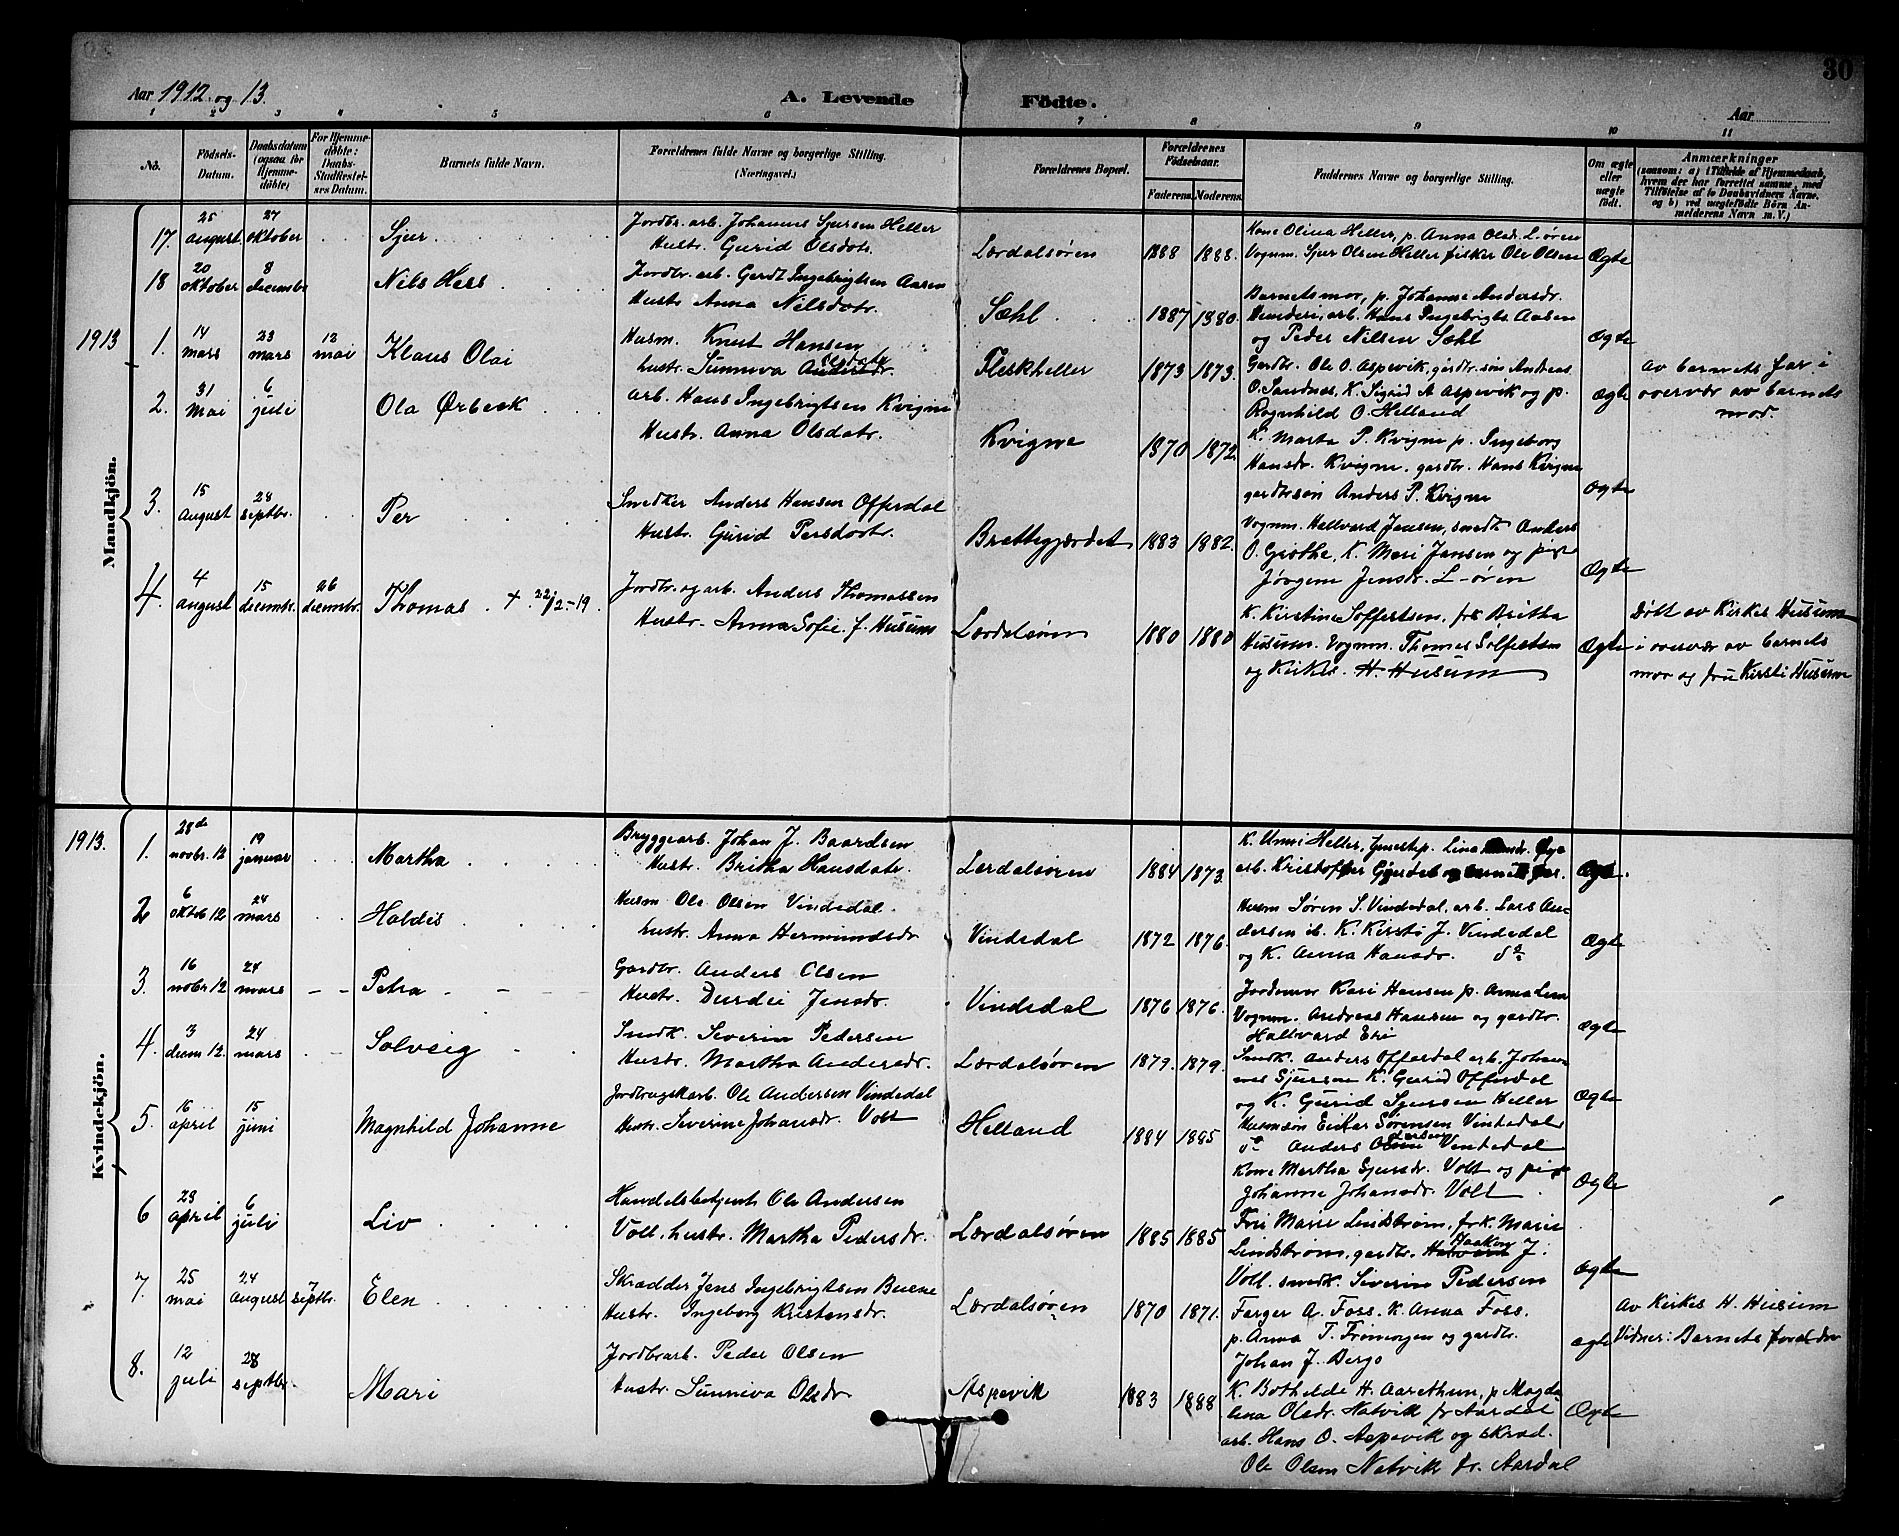 30
Aar 1912 og 13.
A. Levende Födte.
Aar
1 2 3 4 5 6 7 8 9 10 11
No.
Födsels-Datum.
Daabsdatum (ogsaa for Hjemme-döbte)
For Hjemme-döbte: Daabs-Stadfæstel-ses Datum.
Barnets fulde Navn.
Forældrenes fulde Navne og borgerlige Stilling. (Næringsvei.)
Forældrenes Bopæl.
Forældrenes Födselsaar.
Faderens. Moderens.
Faddernes Navne og borgerlige Stilling.
Om ægte eller uægte født.
Anmærkninger
(saasom: a) i Tilfælde af Hjemmedaab, hvem der har forrettet samme, med Tilföielse af to Daabsvidners Navne, og b) ved uægtefödte Börn An-melderens Navn m. V.)
Mandkjön.
17. 25 august 27 oktober Sjur
Jordbr. arb. Johannes Sjursen Heller
Hustr. Gurid Olsdotr.
Lærdalsören 1888 1888.
Kone Olina Heller, p. Anna Olsdr. L-ören
Vognm. Sjur Olsen Heller fisker Ole Olsen
Ægte
18 20 oktober 8 decembr Nils Hess
Jordbr. arb. Gerdt Ingebrigtsen Aasen
Hustr. Anna Nilsdotr.
Sæhl 1887 1880.
Barnetsmor, p. Johanne Andersdr.
arb. Hans Ingebrigts. Aasen
og Peder Nilsen Sæhl
Ægte
1913
1. 14 mars 23 mars 12 mai Klaus Olai
Husm. Knut Hansen
hustr. Sunniva Andersdr. Olsdatr
Fleskheller 1873 1873.
Gardbr. Ole O. Aspevik, gardbr. søn Andreas
O. Sandnes, K. Sigrid A Aspevik og p.
Ragnhild O. Helland
Ægte
Av barnets far i
overvær av barnets
mod.
2. 31 mai 6 juli Ola Ørbeck
arb. Hans Ingebrigtsen Kvigne
Hustr. Anna Olsdatr.
Kvigne 1870 1872.
K. Marta P. Kvigne p. Ingeborg
Hansdr. Kvigne. gardbr. Hans Kvigne
gardbrsøn Anders P. Kvigne
Ægte
3. 15 august 28 septbr. Per
Snedker Anders Hansen Offerdal
Hustr. Gurid Persdotr.
Brattegjærdet 1883 1882.
Vognm. Hallvard Jensen, smedk Anders
O. Grøthe, K. Mari Jansen og pige
Jörgine Jensdr. L-ören
Ægte
4. 4 august 15 decembr. 26 decembr. Thomas. + 22/2-19.
Jordbr. og arb. Anders Thomassen
Hustr. Anna Sofie f. Husum
Lærdalsören 1880 1880
K. Kirstine Solfestsen, frk Britha
Husum. Vognm. Thomas Solfestsen
og Kirkes. H. Husum
Ægte
Döbt av Kirkes Husum
i overvær av barnets
mor og fru Kirsti Husum
Kvindekjön.
1913.
1. 28de novbr. 12 19 januar Martha
Bryggearb. Johan J. Baardsen
Hustr. Britha Hansdatr.
Lærdalsören 1884 1873.
K. Unni Heller, p. Lina Øye
arb. Kristoffer Gjerdet og barnets far.
Ægte.
2 6 oktob 12 24 mars Haldis
Husm. Ole Olsen Vindedal
hustr. Anna Hermundsdr
Vindedal 1872 1876.
Husm Sören S. Vindedal, arb. Lars An-
dersen ib. K. Kirsti J. Vindedal
og K. Anna Hansdr.
Ægte
3. 16 nobr 12 24 mars Petra
Gardbr. Anders Olsen
Hustr. Durdei Jensdr.
Vindedal 1876 1876.
Jordemor Kari Hansen p. Anna
Vognm. Andreas Hansen og gardbr.
Hallvard Eri
Ægte
4. 3 decm 12. 24 mars Solveig
Snedk. Severin Pedersen
Hustr. Martha Andersdr.
Lærdalsören 1879. 1879.
Snedk. Anders Offerdal arb. Johan-
nes Sjursen K. Gurid Offerdal
og K. Gurid Sjursen Heller
Ægte
5. 16 april 15 juni Magnhild Johanne
Jordbrugsarb. Ole Andersen Vindedal
Hustr. Severine Johansdr. Volt
Helland 1884 1885
Husmsøn Einar Sörensen Vindedal
Anders Larsen Vindedal
Kone Martha Sjursdr. Volt og pige
Johanne Johansdr. Volt.
Ægte
6 23 april 6 juli Liv
Handelsbetjent Ole Andersen
Voll, hustr. Martha Pedersdr.
Lærdalsören 1885 1885
Fru Marie Lindström, frk. Marie
Lindström, gardbr. Haakon J.
Voll. snedk. Severin Pedersen
Ægte
7. 25 mai 24 august 7 septbr. Elen
Skrædder Jens Ingebrigtsen Buene
Hustr. Ingeborg Kristensdr.
Lærdalsören 1870 1871.
Farger A. Foss. K. Anna Foss.
p. Anna T. Frimorgen og gardbr.
Johan J. Bergo
Ægte
Av Kirkes H. Husum
Vidner: Barnets forældre
8. 12 juli 28 septbr. Mari
Jordbrarb. Peder Olsen
Hustr. Sunniva Olsdr
Aspevik 1883 1888
K. Bothilde H. Aarethun, p Magda-
lena Olsdr. Natvik fr Aardal
arb. Hans O. Aspevik og skræd.
Ole Olsen Natvik fr. Aardal
Ægte